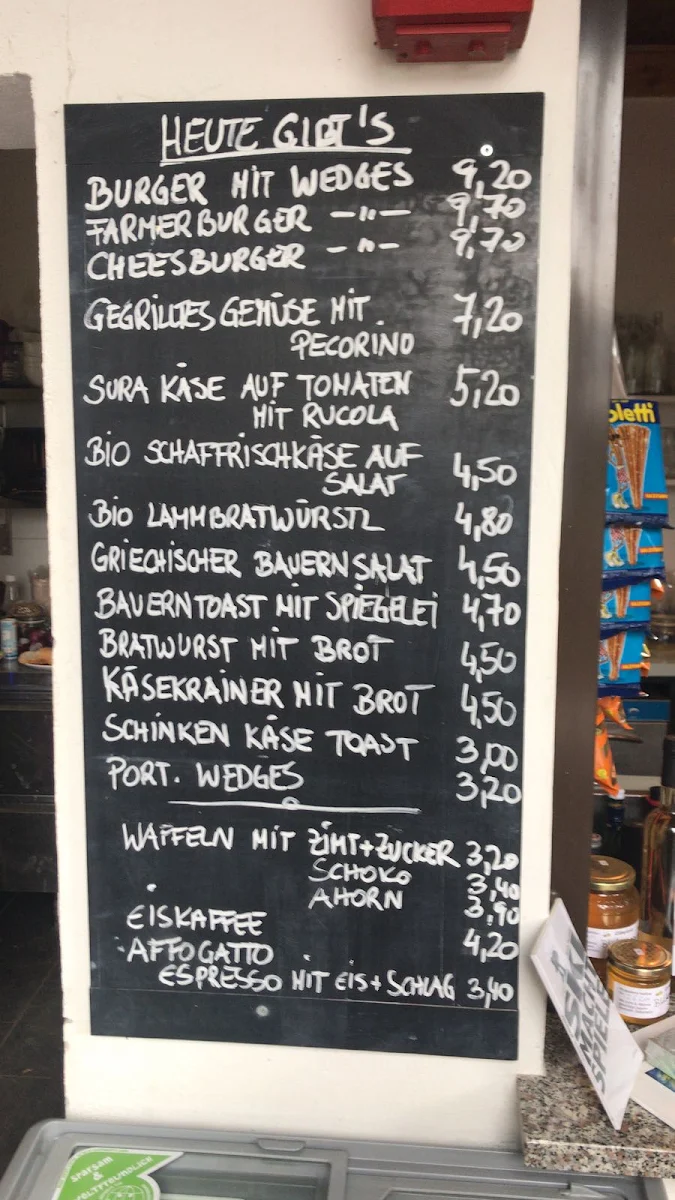 HEUTE GIBT'S
BURGER MIT WEDGES 9,20
FARMERBURGER -"- 9,70
CHEESBURGER -"- 9,70
GEGRILLTES GEMÜSE MIT 7,20
PECORINO
SURA KÄSE AUF TOMATEN 5,20
MIT RUCOLA
BIO SCHAFFRISCHKÄSE AUF
SALAT 4,50
BIO LAMMBRATWÜRSTL 4,80
GRIECHISCHER BAUERNSALAT 4,50
BAUERNTOAST MIT SPIEGELEI 4,70
BRATWURST MIT BROT 4,50
KÄSEKRAINER MIT BROT 4,50
SCHINKEN KÄSE TOAST 3,00
PORT. WEDGES 3,20
WAFFELN MIT ZIMT+ZUCKER 3,20
SCHOKO 3,40
AHORN 3,90
EISKAFFEE 4,20
AFFOGATTO
ESPRESSO MIT EIS+SCHLAG 3,40
oletti
SKI
MACHT
SPIELE
sparsam
&